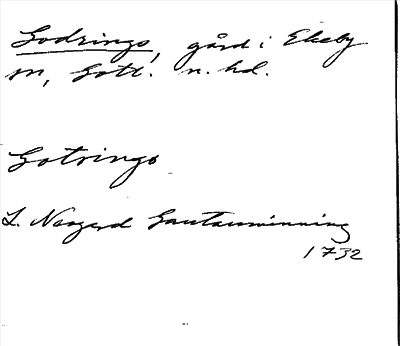 Godrings, gård i Ekeby
sn, Gotl. n. hd.
Gotrings
L. Norgerd Gautauminning
1732